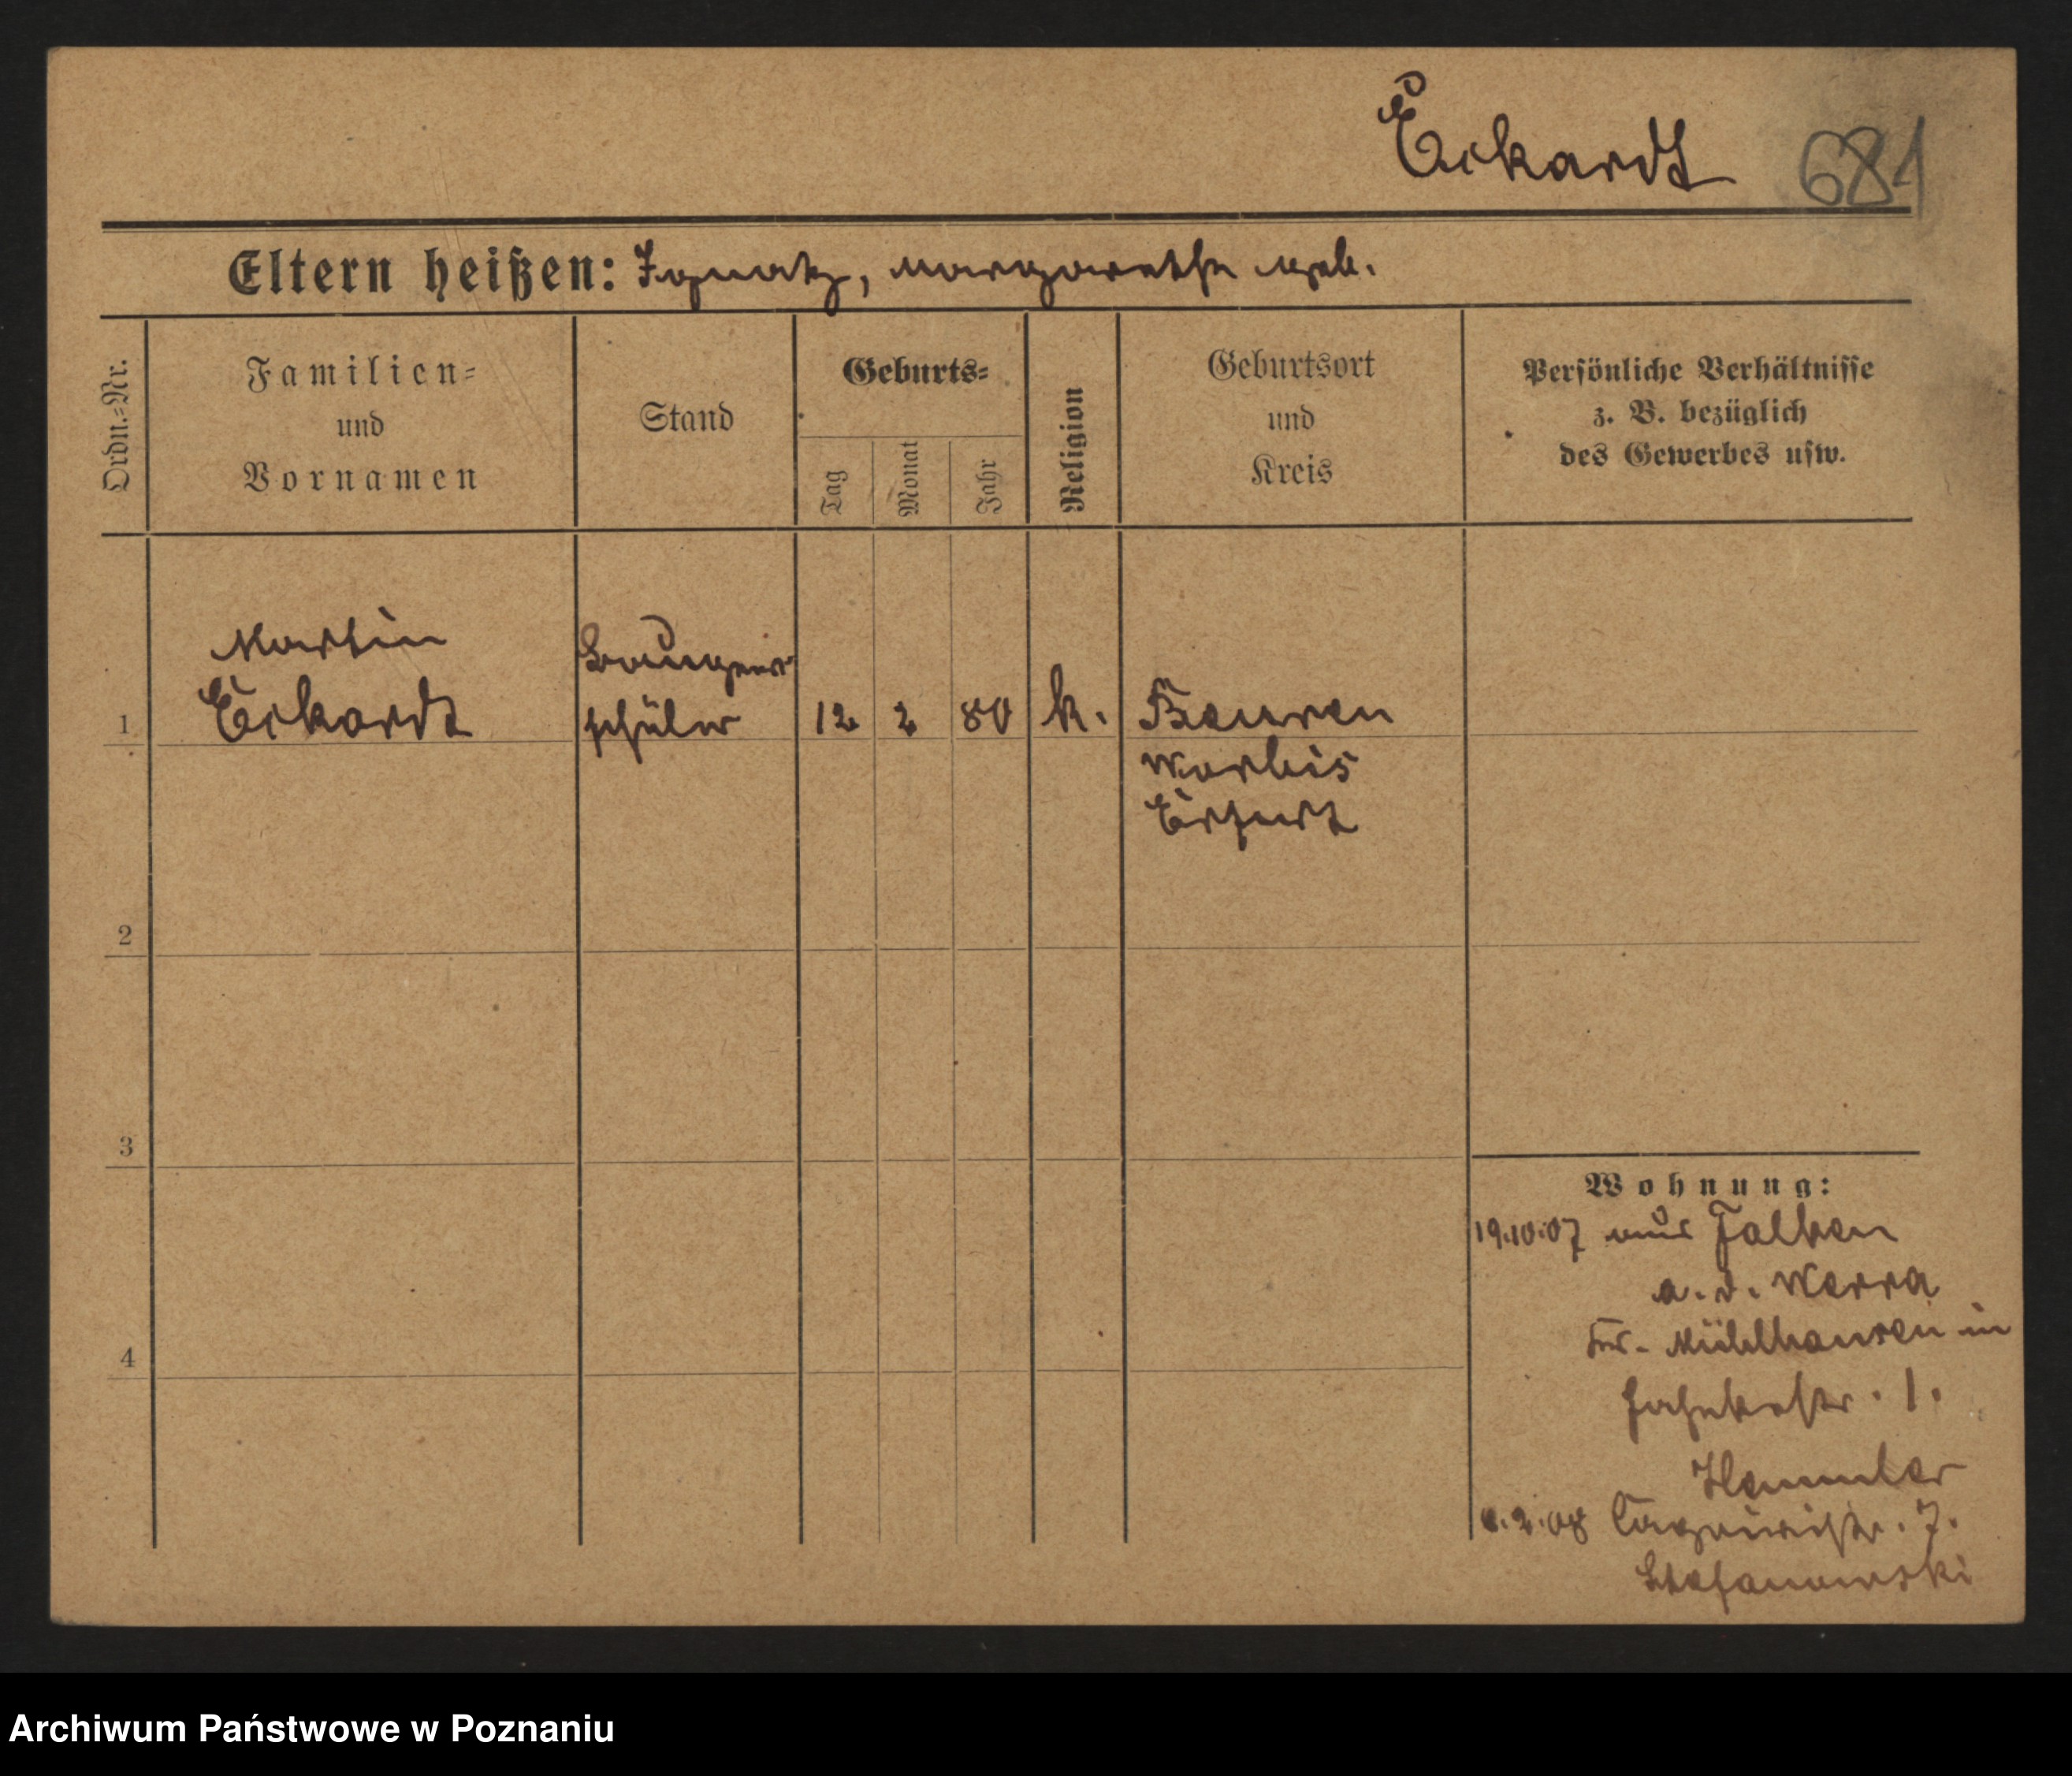 Eckardt 681
Eltern heißen: Ignatz, Margarethe geb.
Ordn.-Nr.
Familien-
und
Vornamen
Stand
Geburts-
Tag
Monat
Jahr
Religion
Geburtsort
und
Kreis
Persönliche Verhältnisse
z. B. bezüglich
des Gewerbes usw.
Martin
Eckardt
Baugew
schüler
1
12 2 80 k.
Beuren
Worbis
Erfurt
2
3
4
Wohnung:
19.10.07 aus Falken
a. d. Werra
Kr. Mühlhausen in
str. 1.
Hemmler
2.08 str. 7.
Stefanowski
Archiwum Państwowe w Poznaniu